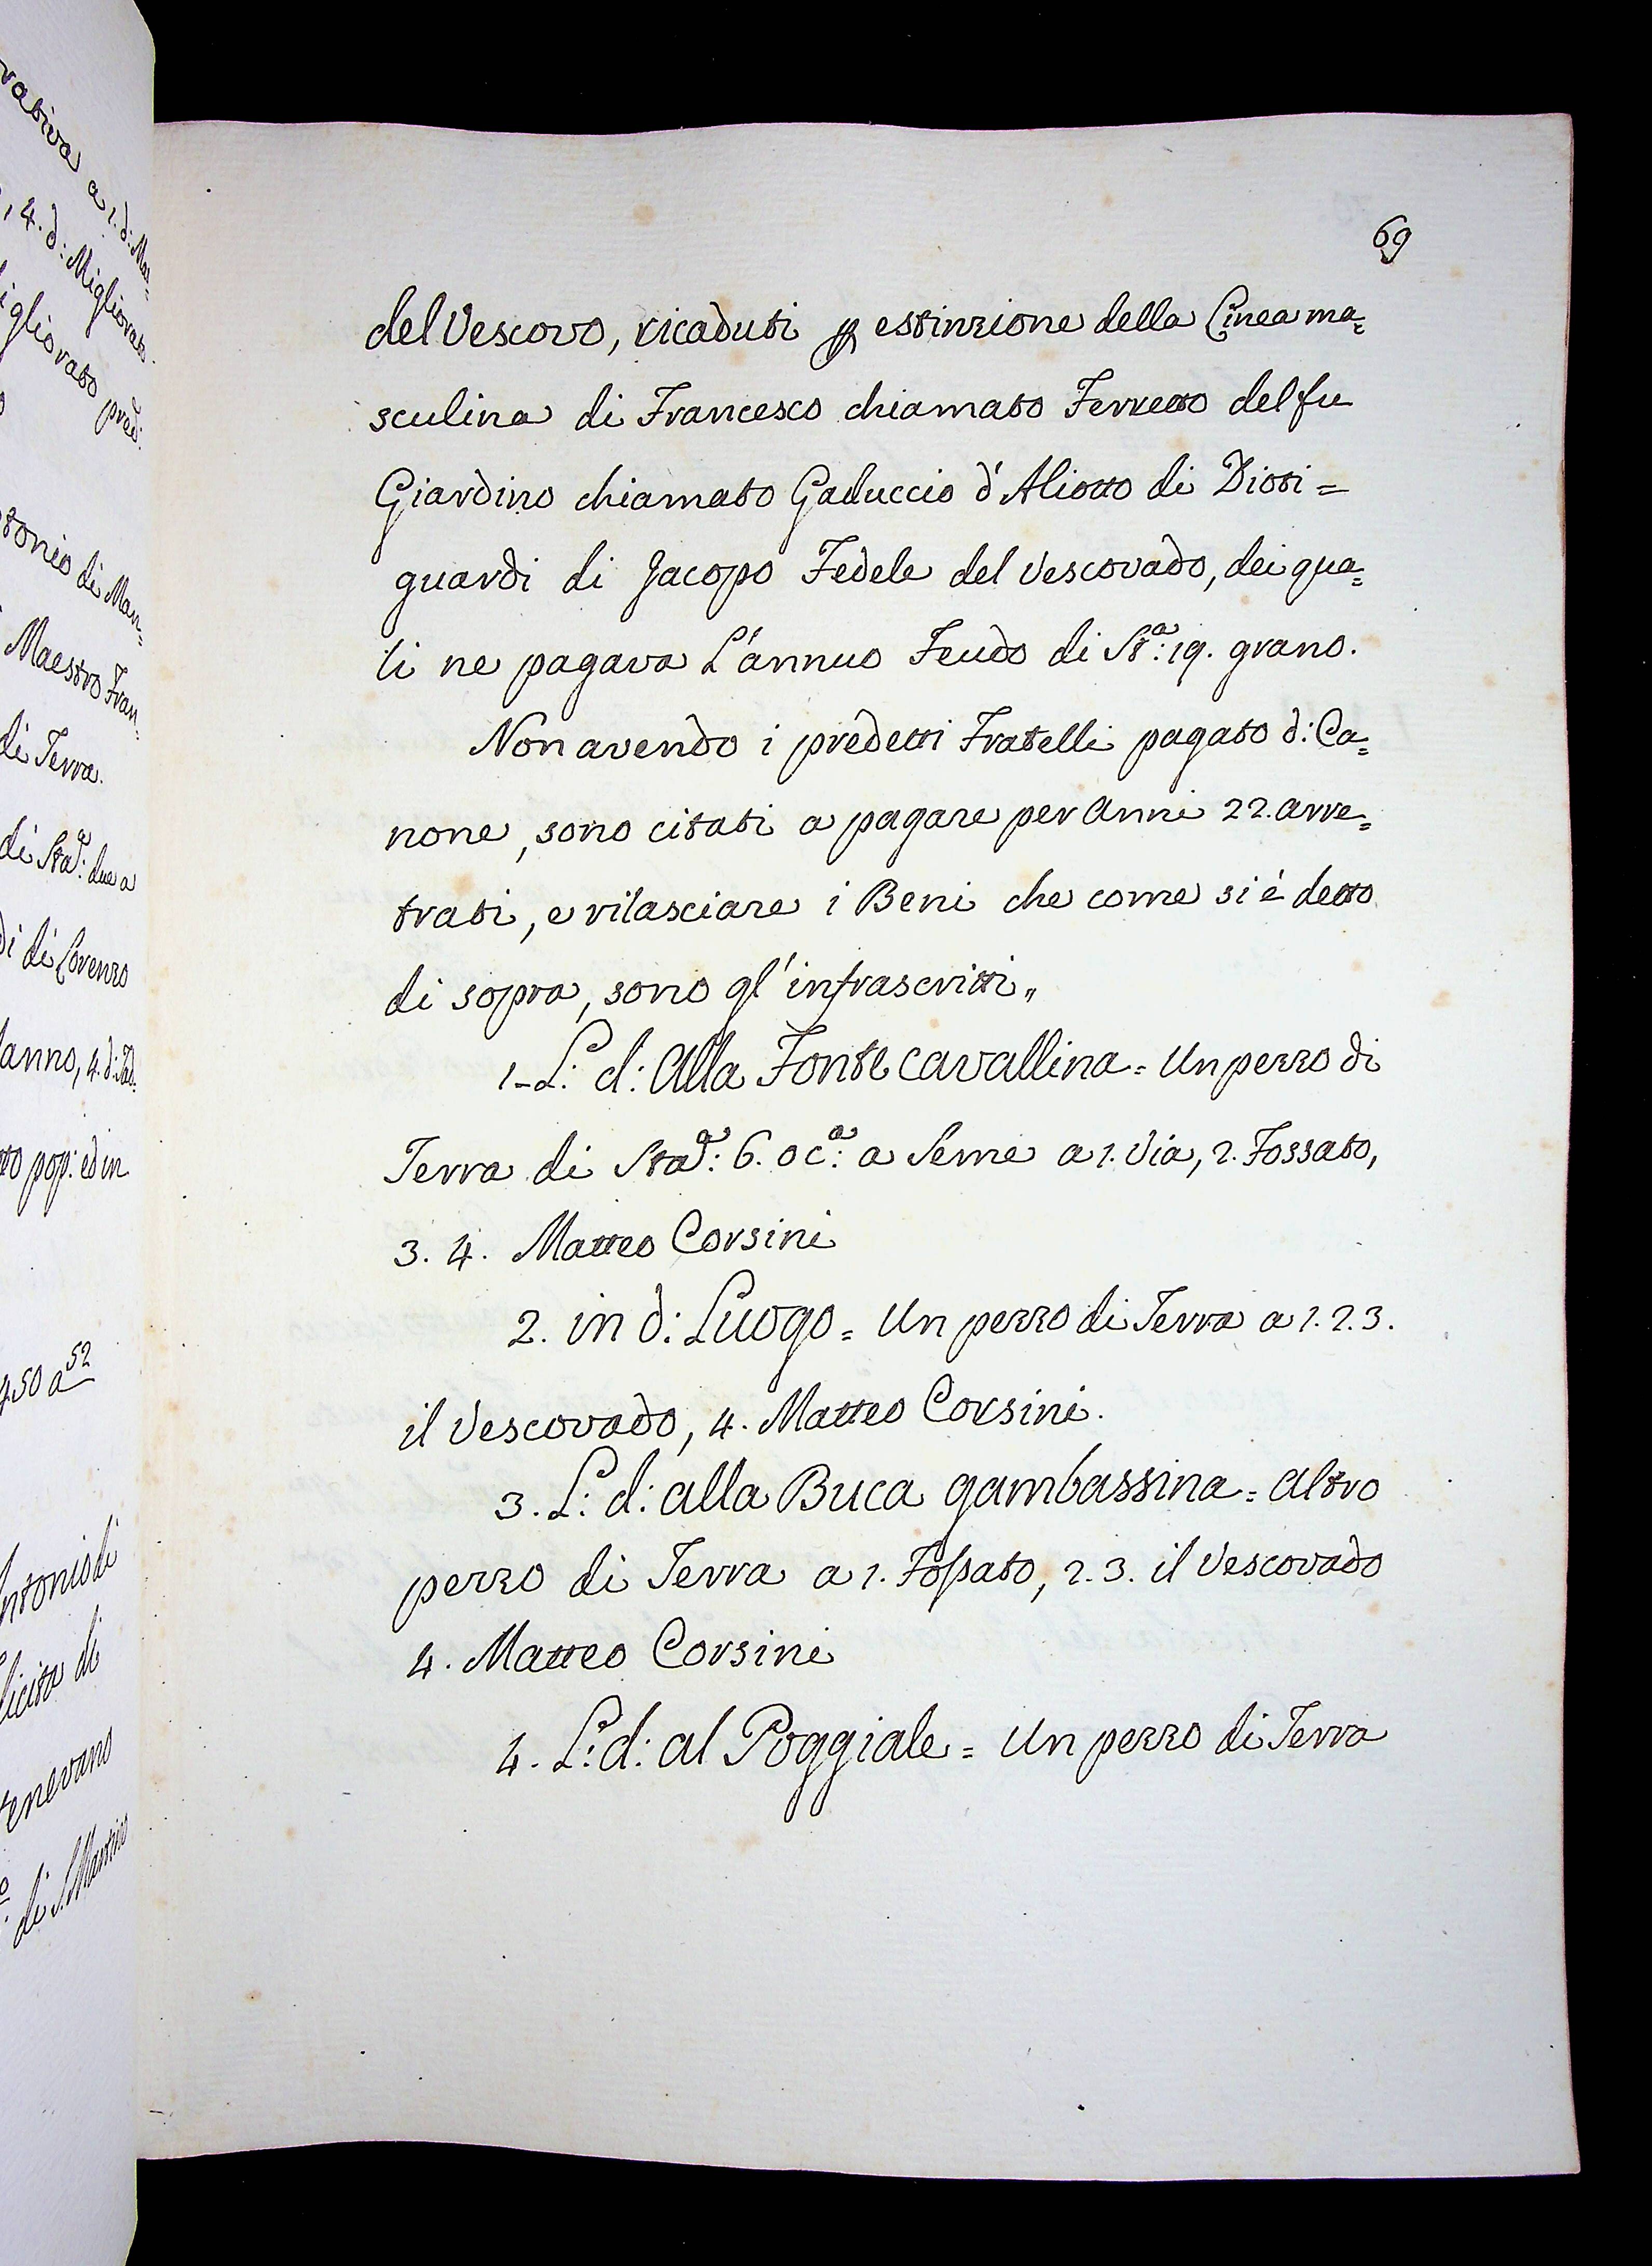 rativa a 1. d: Mar=
, 4. d: Migliorato
igliorato pred:
tonio di Man=
Maestro Fran=
di Terra.
di Sta:ª due a
di di Lorenzo
anno, 4. d:
to pop: ed in
450 a 52
Antonio di
licita di
tenevano
di S. Martino
69
del Vescovo, ricaduti p estinzione della Linea ma=
sculina di Francesco chiamato Ferretto del fu
Giardino chiamato Gaduccio d'Aliotto di Dioti=
guardi di Jacopo Fedele del Vescovado, dei qua=
li ne pagava L'annuo Feudo di St:ª 19. grano.
Non avendo i predetti Fratelli pagato d: Ca=
none, sono citati a pagare per Anni 22. arre=
trati, e rilasciare i Beni che come si è detto
di sopra, sono gl'infrascritti„
1- L: d: Alla Fonte cavallina = Un pezzo di
Terra di Stad:ª 6. oc:ª a Seme a 1. Via, 2. Fossato,
3. 4. Matteo Corsini
2. in d: Luogo = Un pezzo di Terra a 1. 2. 3.
il Vescovado, 4. Matteo Corsini.
3. L: d: alla Buca gambassina = Altro
pezzo di Terra a 1. Fossato, 2. 3. il Vescovado
4. Matteo Corsini
4. L: d: al Poggiale = Un pezzo di Terra